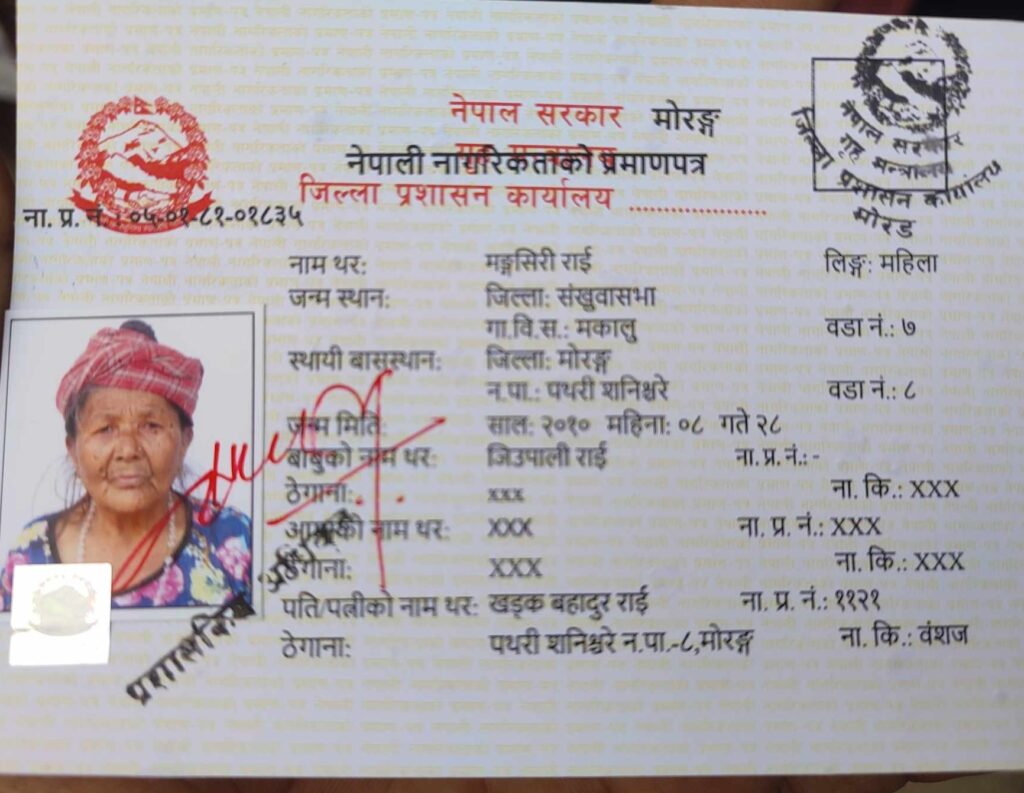 नेपाल सरकार मोरङ्ग
गृह मन्त्रालय
नेपाली नागरिकताको प्रमाणपत्र
जिल्ला प्रशासन कार्यालय ....................
नेपाल सरकार
गृह मन्त्रालय
जिल्ला प्रशासन कार्यालय
मोरङ
ना. प्र. नं. : ०५-०१-८१-०१८३५
नाम थर: मङ्गसिरी राई लिङ्ग: महिला
जन्म स्थान: जिल्ला: संखुवासभा
गा.वि.स.: मकालु वडा नं.: ७
स्थायी बासस्थान: जिल्ला: मोरङ्ग
न.पा.: पथरी शनिश्चरे वडा नं.: ८
जन्म मिति: साल: २०१० महिना: ०८ गते २८
बाबुको नाम थर: जिउपाली राई ना. प्र. नं.: -
ठेगाना: xxx ना. कि.: XXX
आमाको नाम थर: XXX ना. प्र. नं.: XXX
ठेगाना: XXX ना. कि.: XXX
पति/पत्नीको नाम थर: खड्क बहादुर राई ना. प्र. नं.: ११२१
ठेगाना: पथरी शनिश्चरे न.पा.-८,मोरङ्ग ना. कि.: वंशज